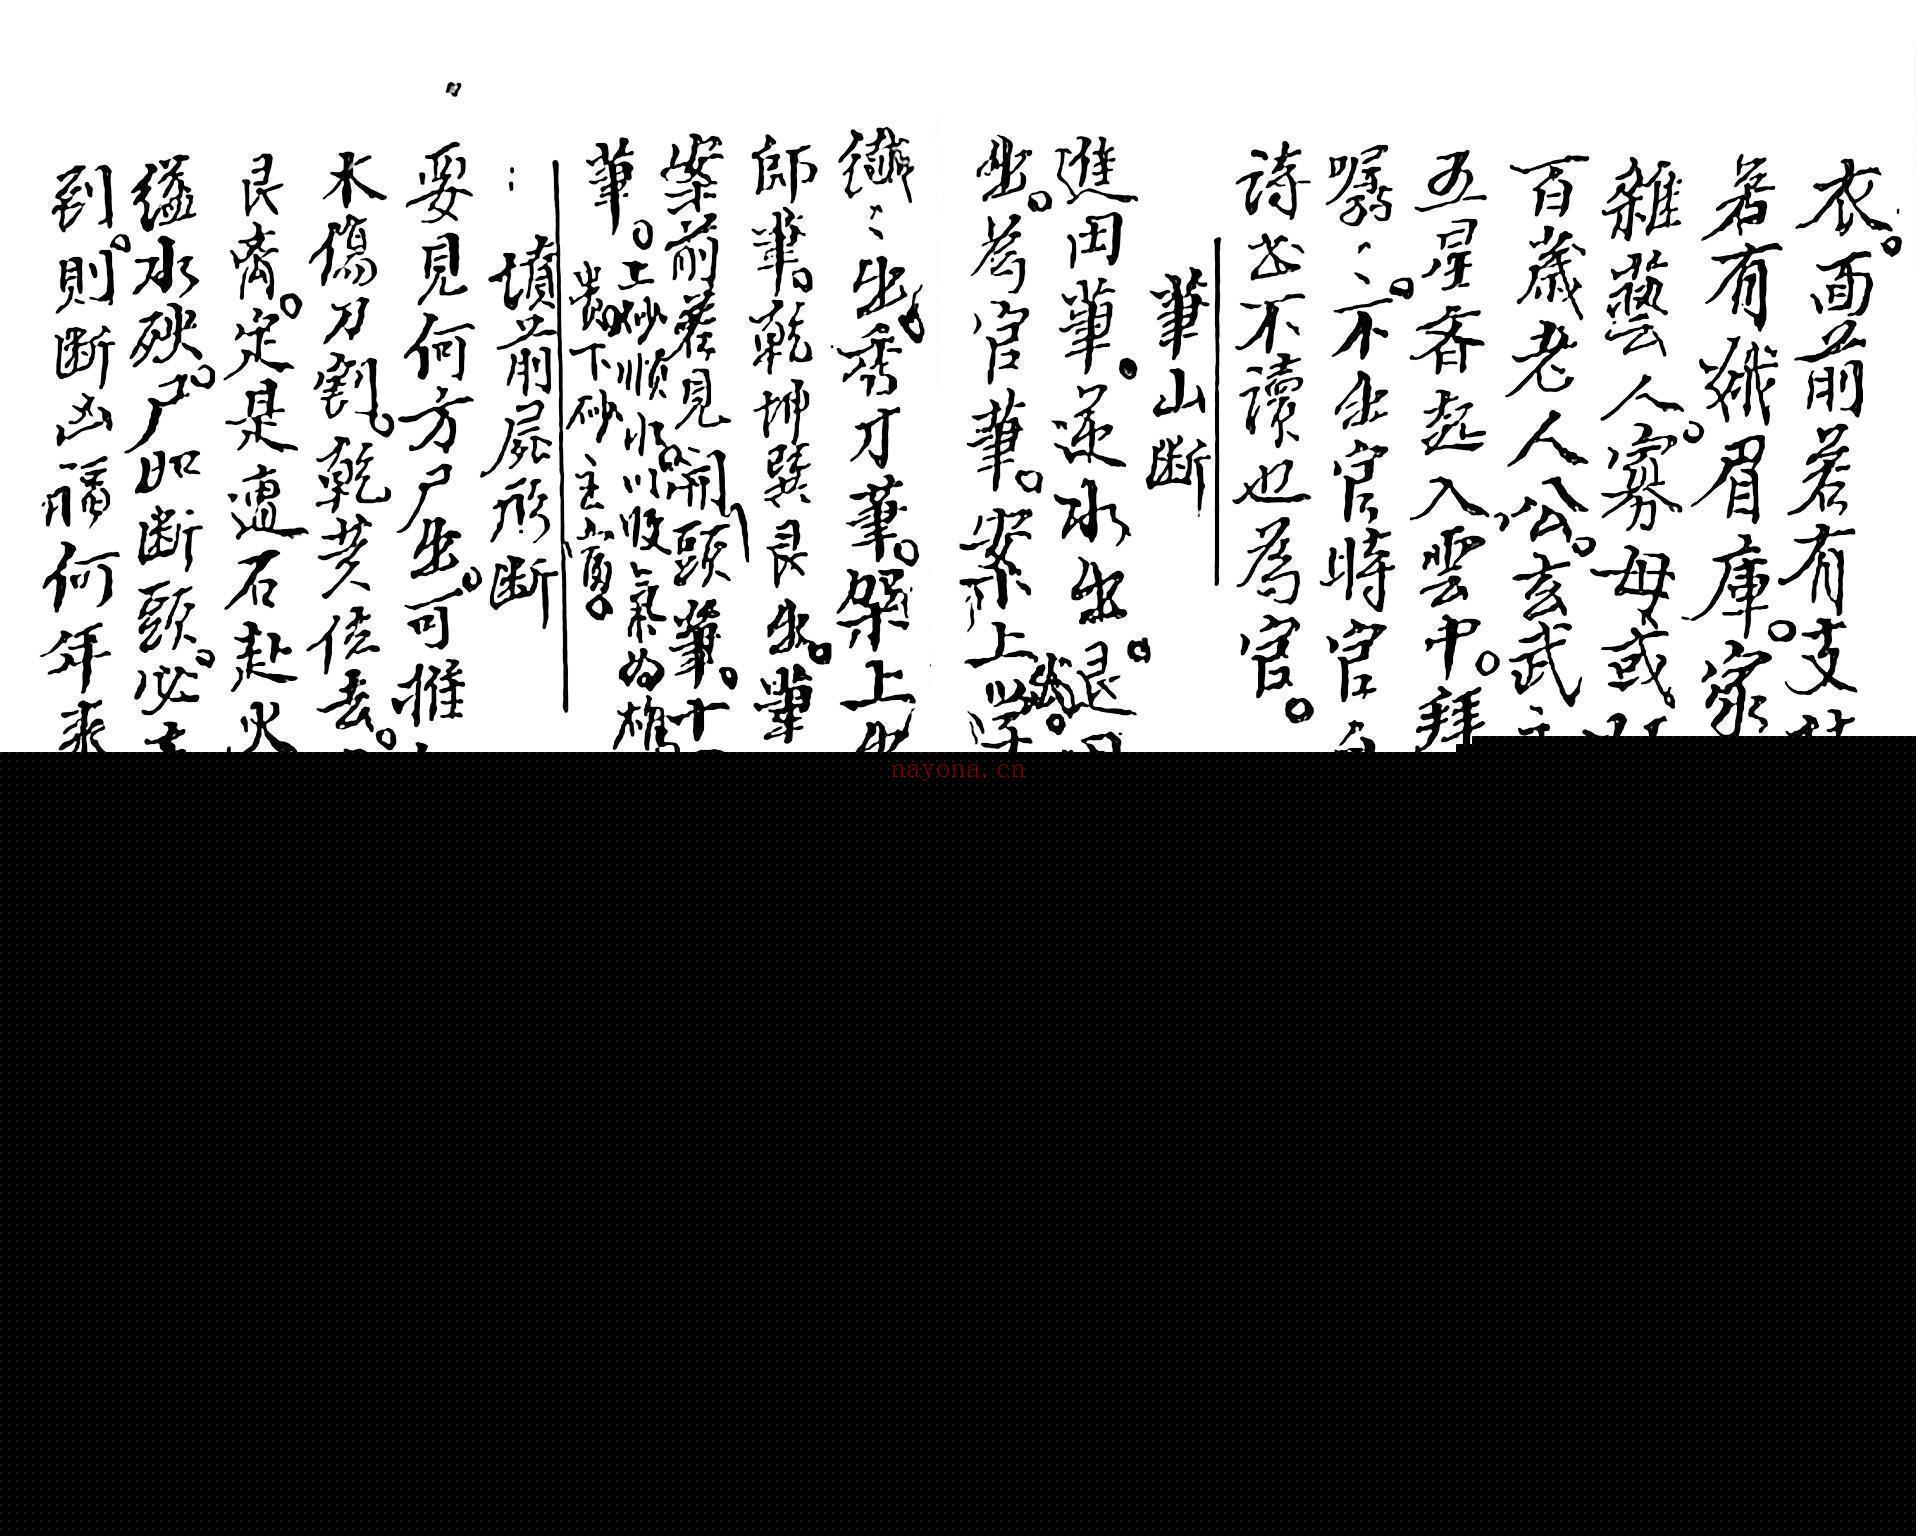 衣。面前若有支
若有娥眉庫。家
雜藝人。寡母或
百歲老人公。玄武
五星吞起入雲中。拜
嘱〻。不出官時官
詩书不讀也為官。
筆山断
進田筆。逆水出退
出。為官筆。案上
〻出。秀才筆。架上
師筆。乾坤巽艮出。筆
案前若見開頭筆。十
筆。
上砂順水。以收氣為雄
下砂主富。
墳前屍形断
要見何方尸出。可推
木傷刀割。乾 去。
艮离。定是遭石赴火
縊水砂。尸如断頭。必
到。則断凶禍何年来
nayona.cn